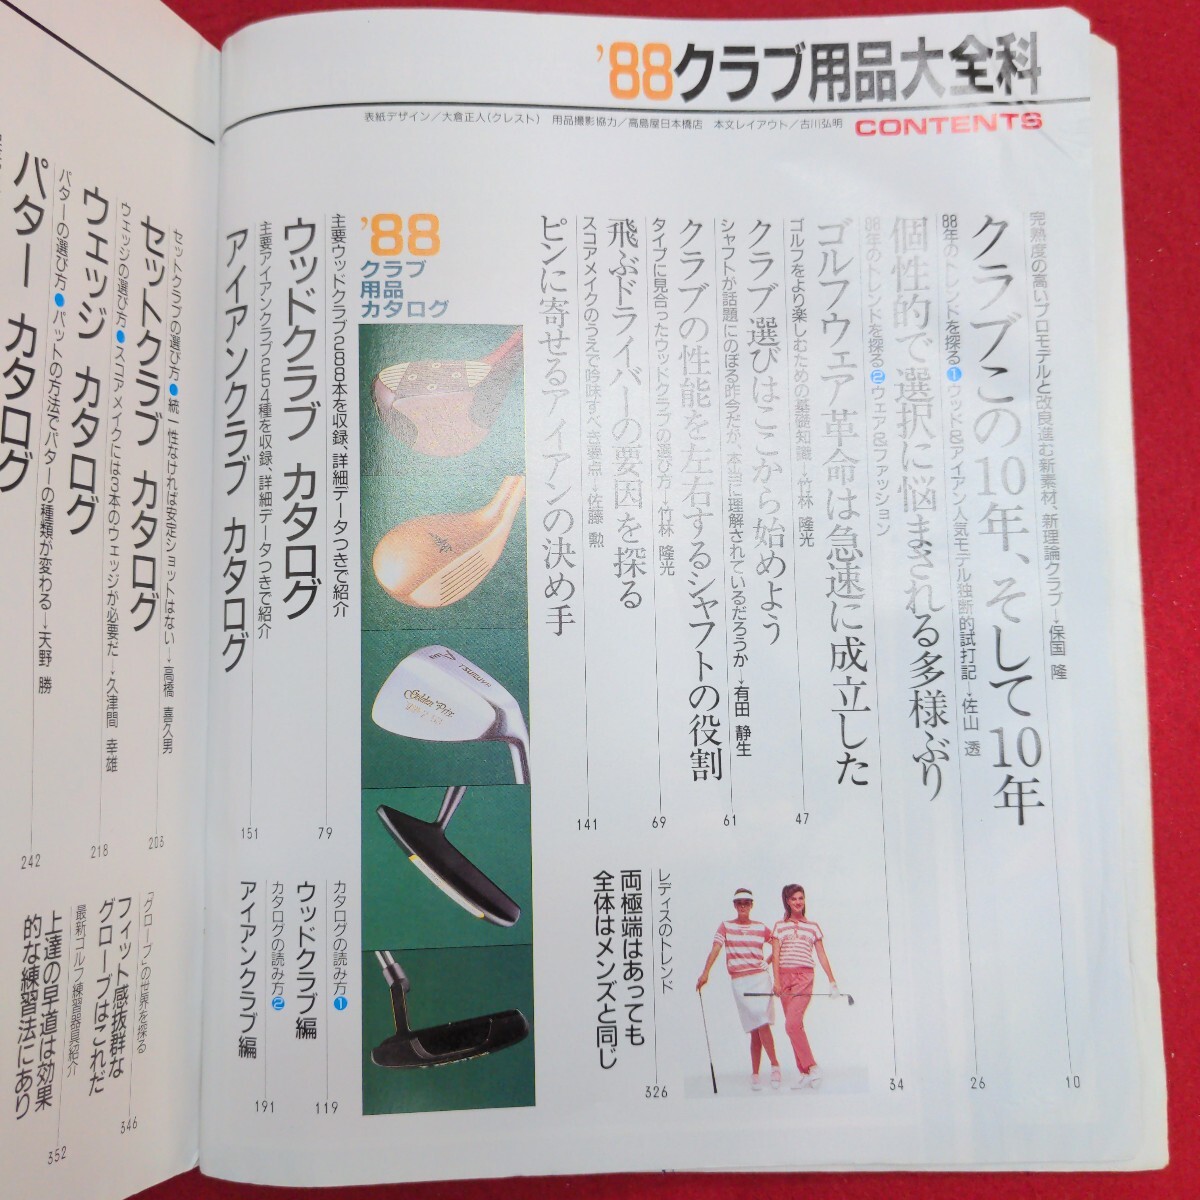 '88クラブ用品大全科
CONTENTS
表紙デザイン／大倉正人(クレスト)　用品撮影協力／高島屋日本橋店　本文レイアウト／古川弘明
完熟度の高いプロモデルと改良進む新素材、新理論クラブ→保国 隆
クラブこの10年、そして10年
10
88年のトレンドを探る❶ウッド&アイアン人気モデル独断的試打記→佐山 透
個性的で選択に悩まされる多様ぶり
26
88年のトレンドを探る❷ウェア&ファッション
ゴルフウェア革命は急速に成立した
34
ゴルフをより楽しむための基礎知識→竹林 隆光
クラブ選びはここから始めよう
47
シャフトが話題にのぼる昨今だが、本当に理解されているだろうか→有田 静生
クラブの性能を左右するシャフトの役割
61
タイプに見合ったウッドクラブの選び方→竹林 隆光
飛ぶドライバーの要因を探る
69
スコアメイクのうえで吟味すべき要点→佐藤 勲
ピンに寄せるアイアンの決め手
141
レディスのトレンド
両極端はあっても
全体はメンズと同じ
326
'88
クラブ
用品
カタログ
TSURUYA
Golden Prix
主要ウッドクラブ288本を収録、詳細データつきで紹介
ウッドクラブ カタログ
79
主要アイアンクラブ254種を収録、詳細データつきで紹介
アイアンクラブ カタログ
151
カタログの読み方❶
ウッドクラブ編
119
カタログの読み方❷
アイアンクラブ編
191
セットクラブの選び方●統一性なければ安定ショットはない→高橋 喜久男
セットクラブ カタログ
203
ウェッジの選び方●スコアメイクには3本のウェッジが必要だ→久津間 幸雄
ウェッジ カタログ
218
パターの選び方●パットの方法でパターの種類が変わる→天野 勝
パター カタログ
242
「グローブ」の世界を探る
フィット感抜群な
グローブはこれだ
346
最新ゴルフ練習器具紹介
上達の早道は効果
的な練習法にあり
352